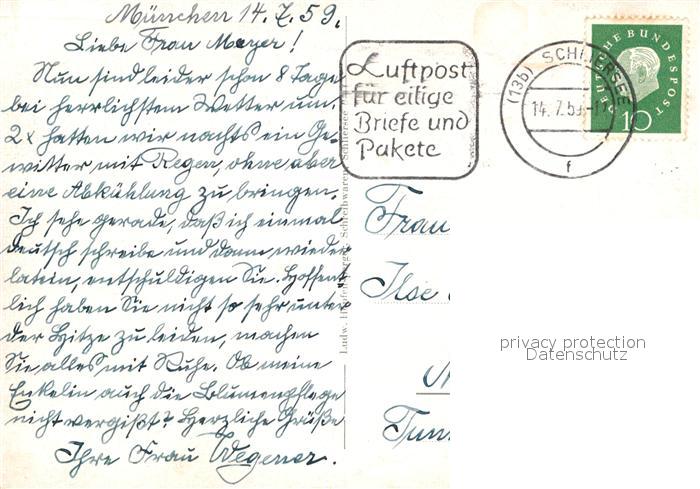 München 14.7.59.
Liebe Frau Mayer!
Nun sind leider schon 8 Tage
bei herrlichstem Wetter um,
2x hatten wir nachts ein Ge-
witter mit Regen, ohne aber
eine Abkühlung zu bringen.
Ich sehe gerade, daß ich einmal
deutsch schreibe und dann wieder
latein, entschuldigen Sie. Hoffent-
lich haben Sie nicht so sehr unter
der Hitze zu leiden, machen
Sie alles mit Ruhe. Ob meine
Enkelin auch die Blumenpflege
nicht vergißt? Herzliche Grüße
Ihre Frau Wegener.
Luftpost
für eilige
Briefe und
Pakete
(13b) SCHLIERSEE
14.7.59
f
DEUTSCHE BUNDESPOST
10
Schreibwaren, Schliersee
Frau
Ilse
privacy protection
Datenschutz